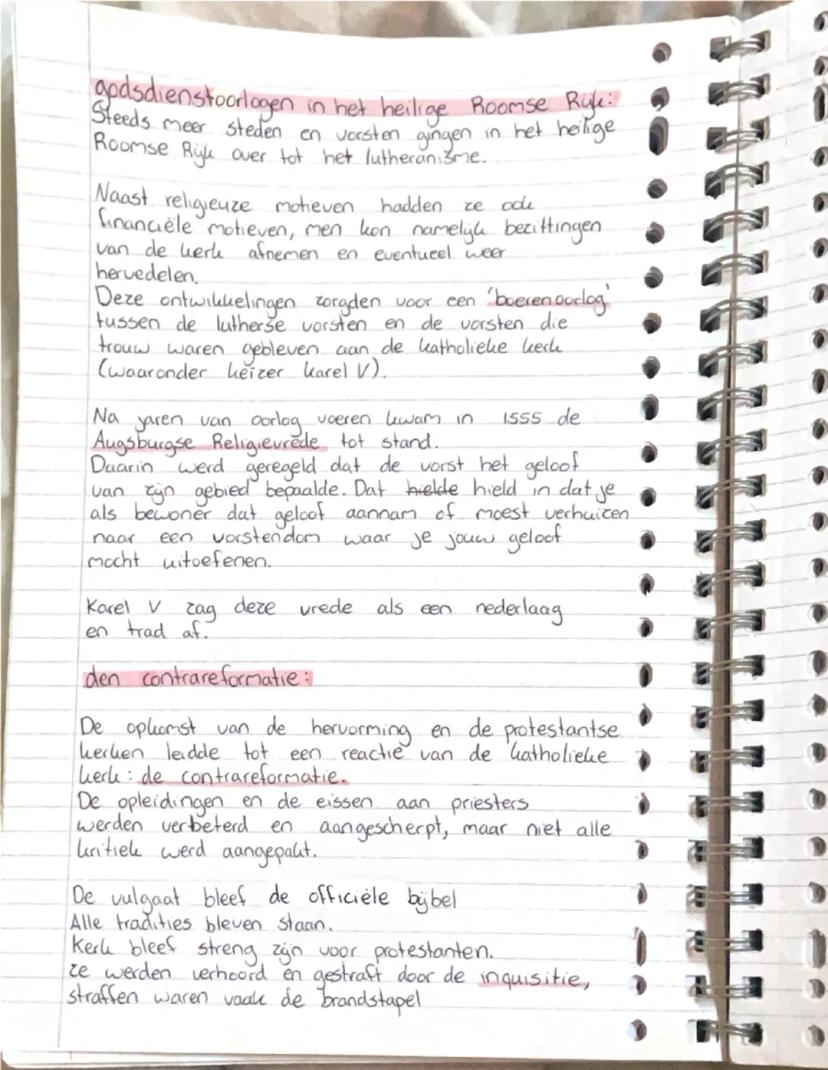 godsdienstoorlogen in het heilige Roomse Rijk:
Steeds meer steden en vorsten gingen in het heilige
Roomse Rijk over tot het lutheranisme.
Naast religieuze motieven hadden ze ook
financiële motieven, men kon namelijk bezittingen
van de kerk afnemen en eventueel weer
hervedelen.
Deze ontwikkelingen zorgden voor een 'boerenoorlog'
tussen de lutherse vorsten en de vorsten die
trouw waren gebleven aan de katholieke kerk
(waaronder keizer karel V).
Na jaren van oorlog voeren kwam in 1555 de
Augsburgse Religievrede tot stand.
Daarin werd geregeld dat de vorst het geloof
van zijn gebied bepaalde. Dat hielde hield in dat je
als bewoner dat geloof aannam of moest verhuizen
naar een vorstendom waar je jouw geloof
mocht uitoefenen.
Karel V zag deze vrede als een nederlaag
en trad af.
den contrareformatie:
De opkomst van de hervorming en de protestantse
kerken leidde tot een reactie van de katholieke
kerk: de contrareformatie.
De opleidingen en de eissen aan priesters
werden verbeterd en aangescherpt, maar niet alle
kritiek werd aangepakt.
De vulgaat bleef de officiële bijbel
Alle tradities bleven staan.
Kerk bleef streng zijn voor protestanten.
ze werden verhoord en gestraft door de inquisitie,
straffen waren vaak de brandstapel